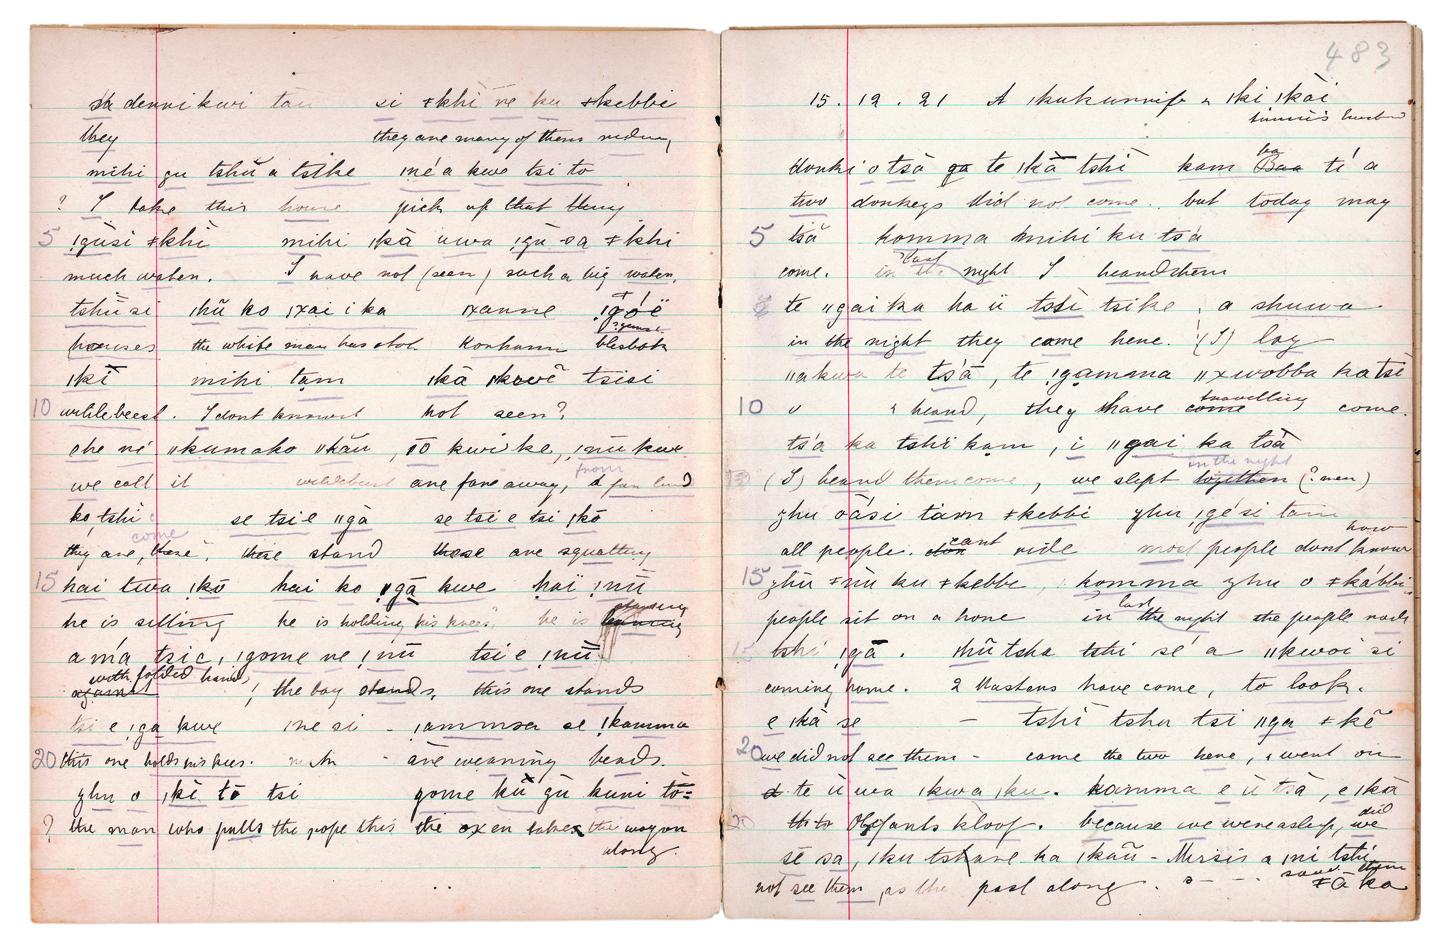 sa dennikwi tan si ǂkhi ne ku ǂkebbi
they they are many of them riding
mihi gu tshū a tsīke ṅé a kwe tsi to
? I take this house pick up that thing
5 ǃgūsi ǂkhī mihi ǀkā uwa ǃgū sa ǂkhi
much water. I have not (seen) such a big water.
tshū si ǀhū ko ǀxai i ka ǀxanne ǃgóë
houses the white man has stolen blesbok
ǀkī mihi tam ǀkā tsisi
10 wildebeest. I dont know it not seen?
ehe né ǁkumako ǁkāu, kwi ke, ǃnū kwe
we call it wildebeest are far away, from a far land
ko tshi se tsi e ǁgā se tsi e tsi ǀkō
they are, come these stand these are squatting
15 hai twa ǀkō hai ko ǃgā kwe hai ǃnū
he is sitting he is holding his knees he is
a má tsie, ǃgome ne ǃnū tsi e ǃnū
against with folded hands, the boy stands, this one stands
tsi e ǃga kwe ne si - ǀammsa se ǃkamma
20 this one holds his knees. - are wearing beads.
ghu o ǀki tō tsi gome kū gū kuni tō=
? the man who pulls the rope this the oxen takes the wagon
along.
483
15. 12. 21 A ǀkukunnife ǀki ǀkāi
husband
donki o tsā te ǀkā tshi kam ba té a
two donkeys did not come. but today may
5 tsā komma mihi ku tsa
come. in last night I heard them
te ǁgai ka ha ū tosi tsike, a shuwa
in the night they come here. (I) lay
ǁakwa te tsā, te ǃgamma ǁxwobba ka tsi
10 heard, they have come travelling come.
tsa ka tshi kam, i ǁgai ka tsā
(I) heard them come, we slept together in the night (? men)
ghu oāsi tam ǂkebbi ghu ǃgé si tam
all people. cant ride most people dont know how
15 ghū ǂnū ku ǂkebbi, komma ghu o ǂkábbi
people sit on a horse in last the night the people rode
tshi ǃgā. ǀhū tsha tshi sé a ǁkwoi si
coming home. 2 Masters have come, to look.
e ǀkā se - tshī tshu tsi ǁga ǂkē
20 we did not see them - came the two here, went on
te ū wa ǀkwa ǀku. kamma e ū tsā, e ǀkā
20 Olifants kloof. because we were asleep, we did
se sa, ǀku tshave ha ǀkāū - Missis a ǀni tshi
not see them, as the past along. saw them ǂā ka